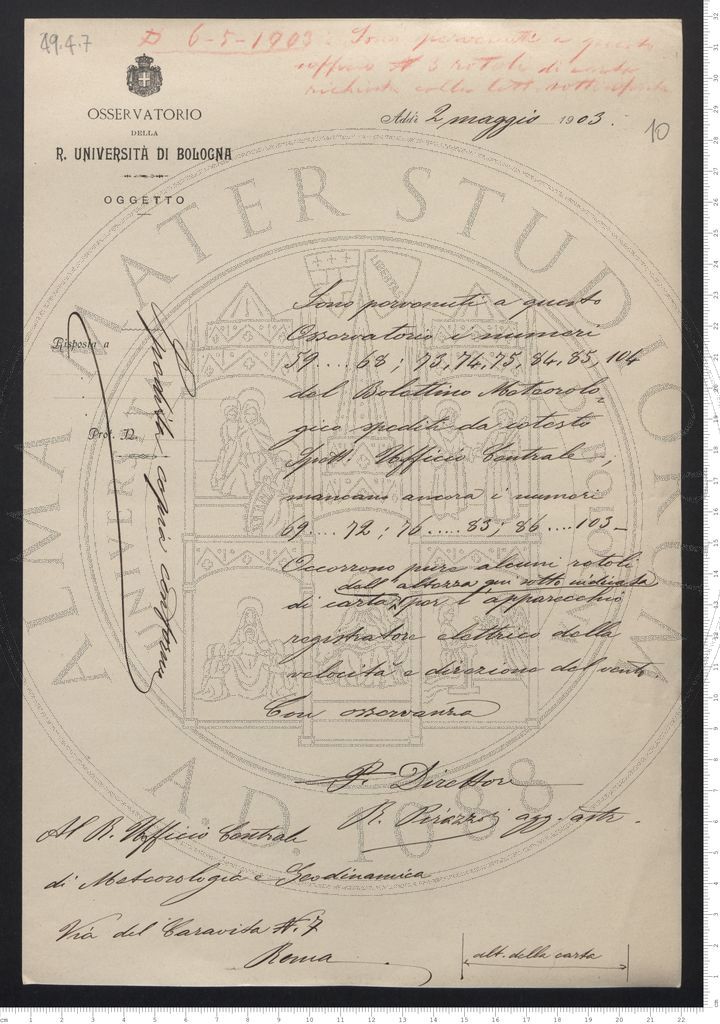 49.4.7
D 6-5-1903: Sono pervenuti a questo
ufficio N 3 rotoli di carta
richiesti colla lett.
OSSERVATORIO
DELLA
R. UNIVERSITÀ DI BOLOGNA
OGGETTO
Addì 2 maggio 1903.
10
Risposta a
Prot. N.
Spedita copia conforme
Sono pervenuti a questo
Osservatorio i numeri
59....68; 73,74,75,84,85,104
del Bolettino Meteorolo=
gico spediti da cotesto
Spett. Ufficio Centrale;
mancano ancora i numeri
69....72; 76.....83; 86....103–
Occorrono pure alcuni rotoli
dall'altezza qui sotto indicata
di carta per l'apparecchio
registratore elettrico della
velocità e direzione del vento
Con osservanza
P. Direttore
R. Pirazzoli agg. astr.
Al R. Ufficio Centrale
di Meteorologia e Geodinamica
Via del Caravita N. 7
Roma
alt. della carta
ALMA MATER STUDIORUM
LIBERTAS
A.D. 1088